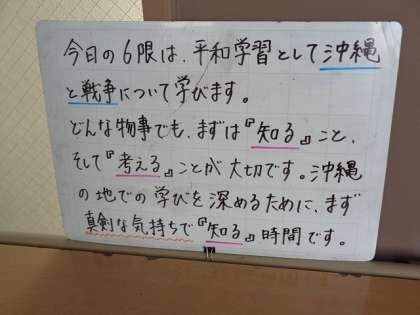 今日の6限は、平和学習として沖縄
と戦争について学びます。
どんな物事でも、まずは『知る』こと、
そして『考える』ことが大切です。沖縄
の地での学びを深めるために、まず
真剣な気持ちで『知る』時間です。